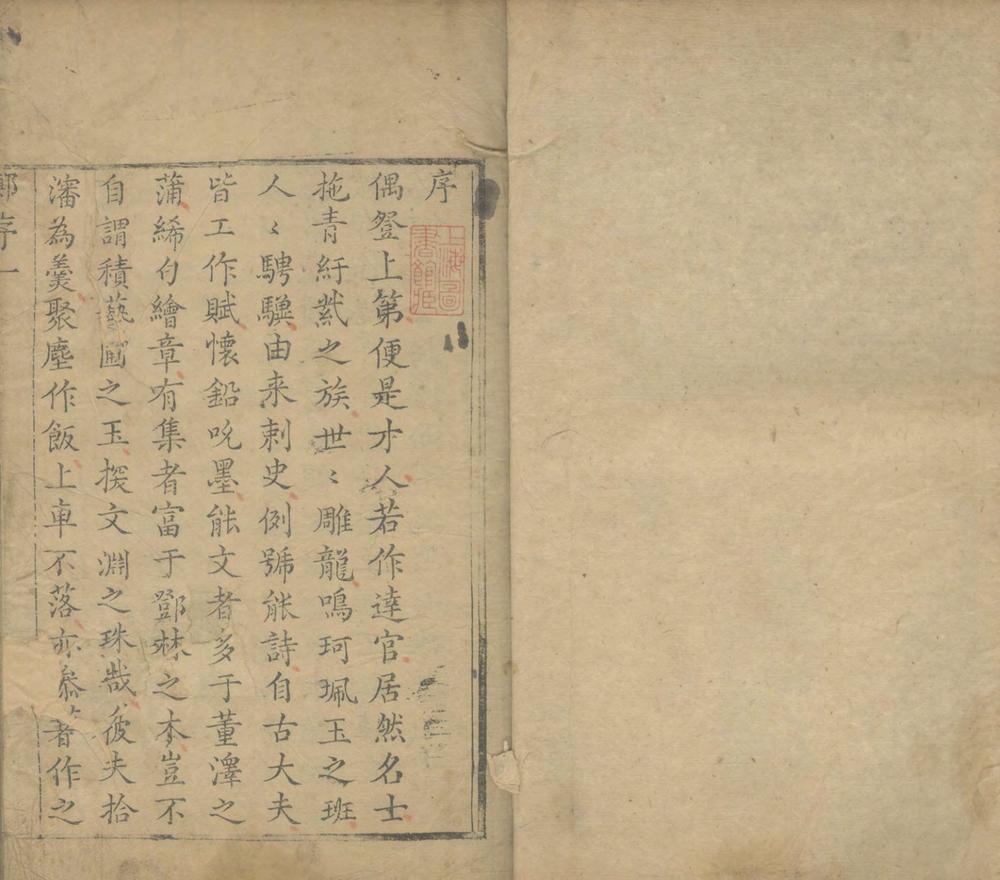 序
偶登上第便是才人若作達官居然名士
拖青紆紫之族世〻雕龍鳴珂珮玉之班
人〻騁驥由来刺史例號能詩自古大夫
皆工作賦懷鉛吮墨能文者多于董澤之
蒲絺句繪章有集者富于鄧林之木豈不
自謂積藝圃之玉探文淵之珠哉彼夫拾
瀋為羹聚塵作飯上車不落亦叅著作之
鄭序一
上海圖書館藏